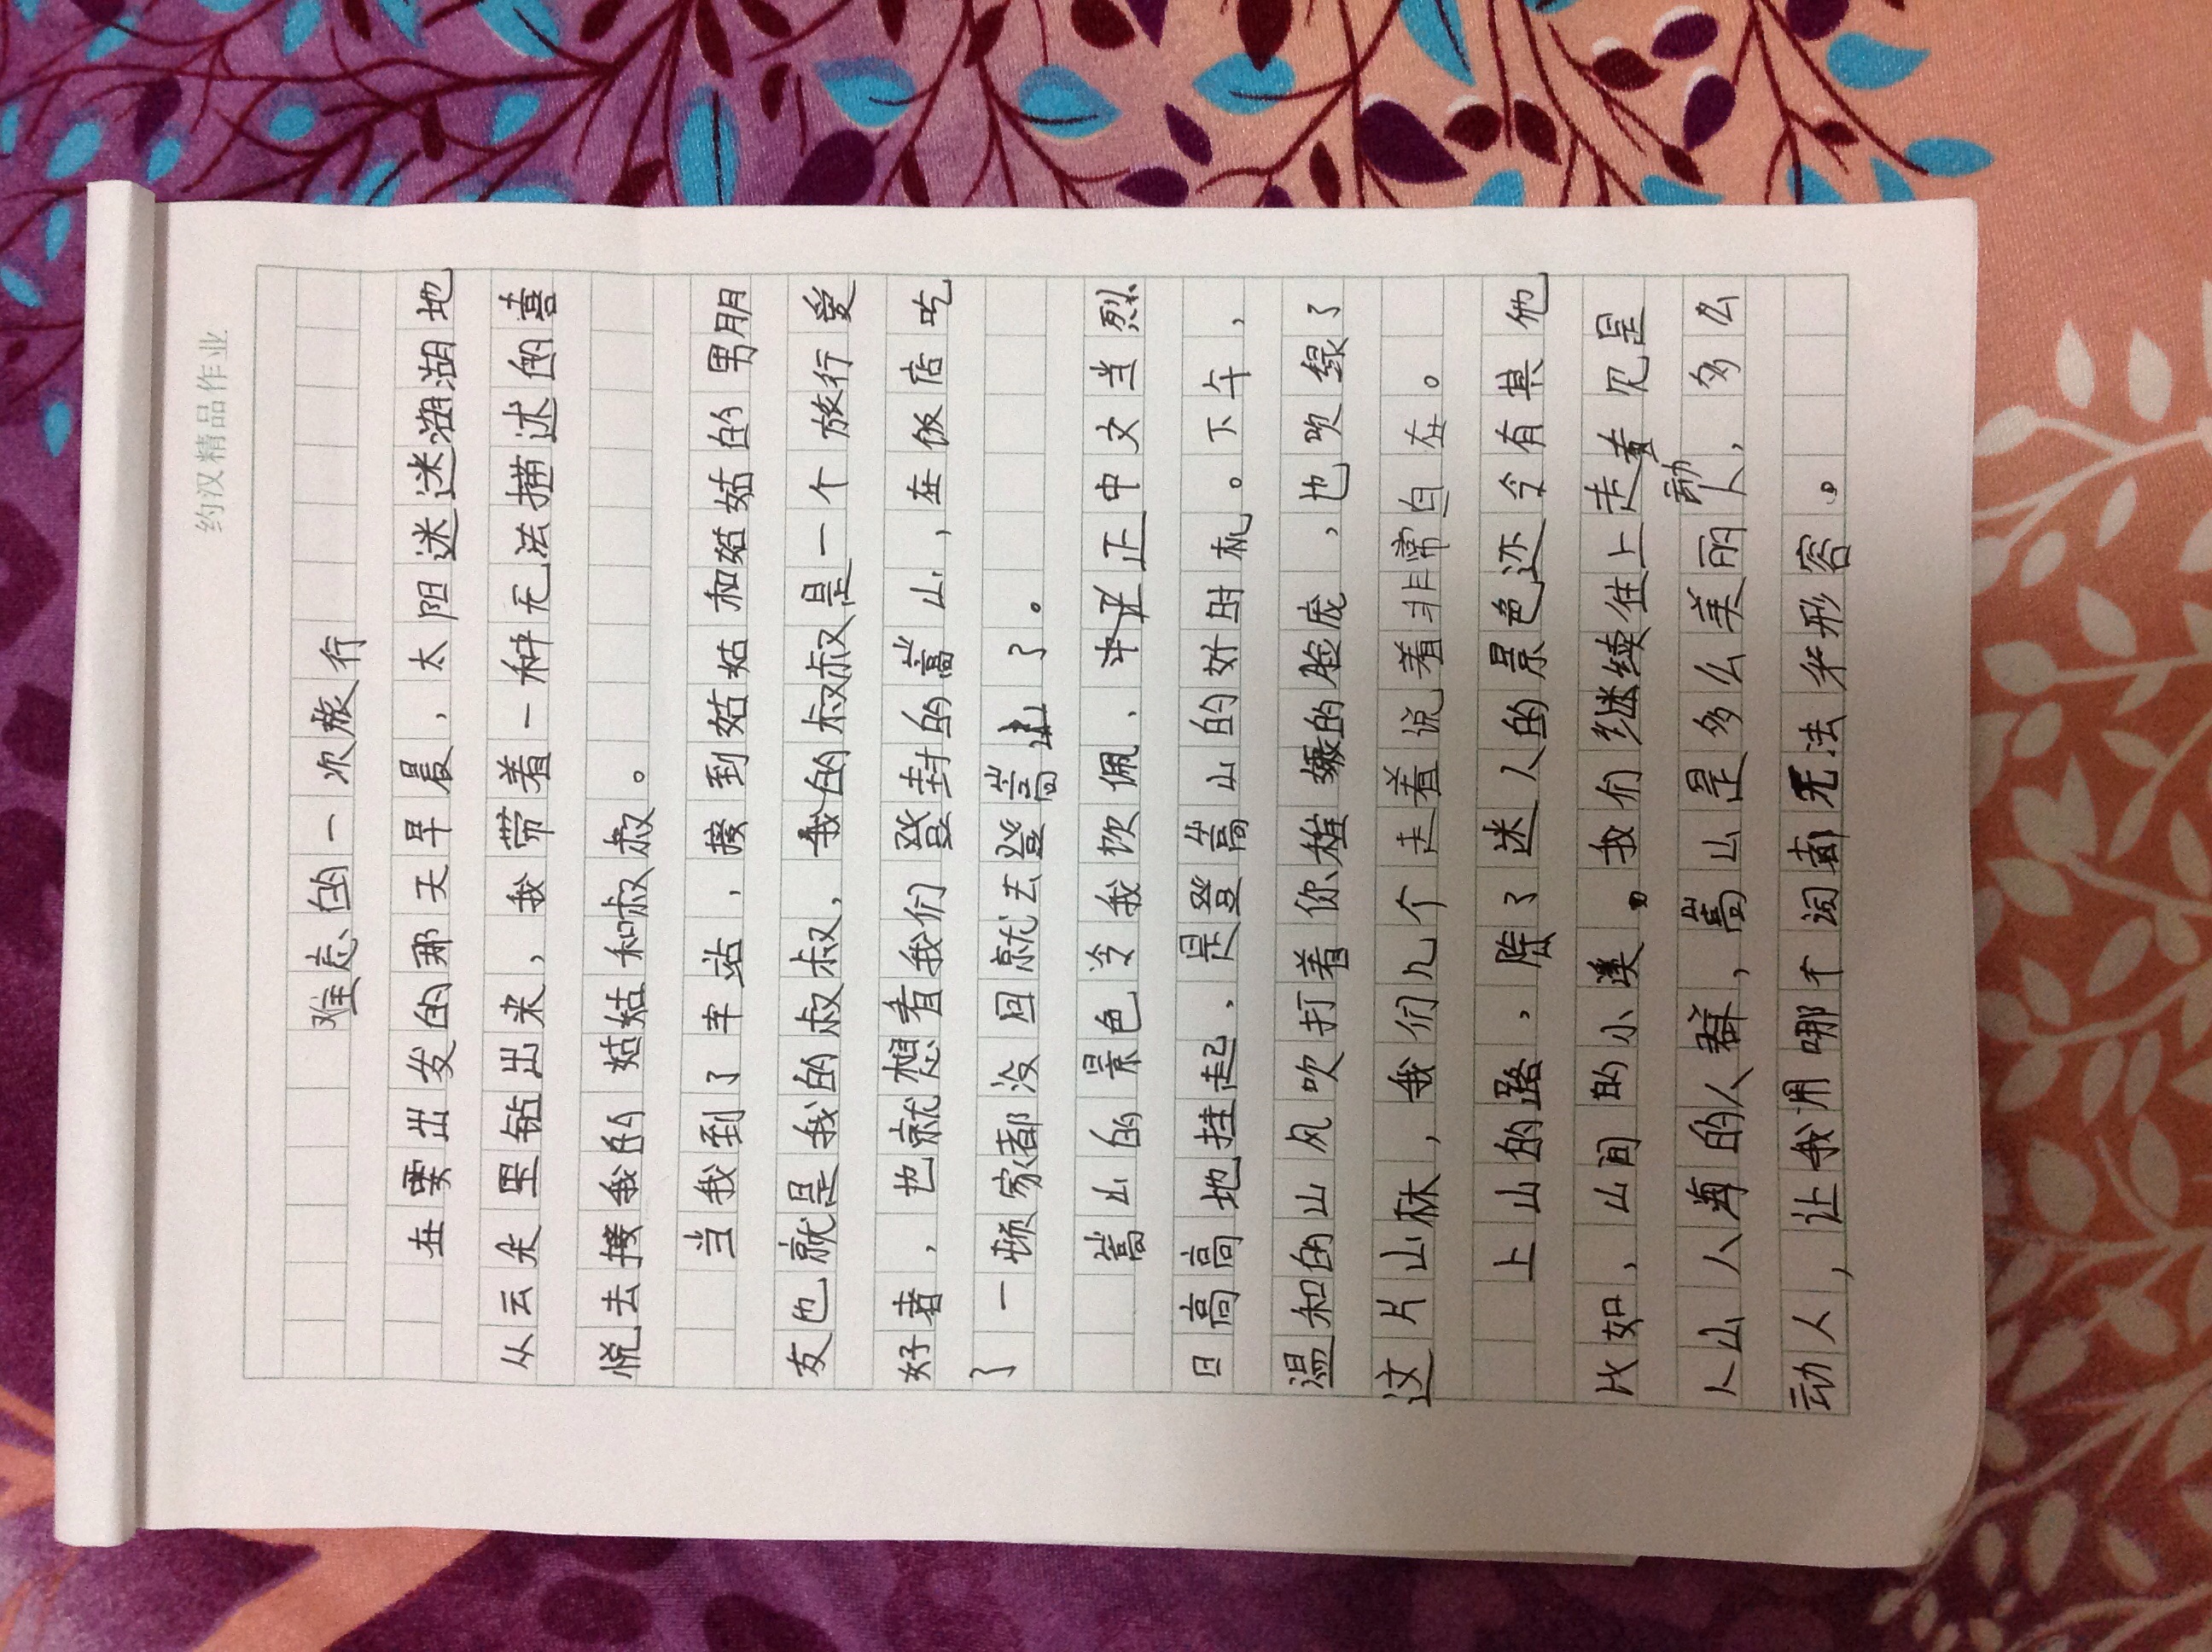 约汉精品作业
难忘的一次旅行
在要出发的那天早晨，太阳迷迷湖湖地
从云朵里钻出来，我带着一种无法描述的喜
悦去接我的姑姑和叔叔。
当我到了车站，接到姑姑和姑姑的男朋
友也就是我的叔叔，我的叔叔是一个旅行爱
好者，也就想看我们登封的嵩山，在饭店吃
了一顿家都没回就去登嵩山了。
嵩山的景色令我饮佩、中正正中文当烈
日高高地挂起，是登嵩山的好时机。下午，
温和的山风吹打着你稚嫩的脸庞，也吹绿了
这片山林，我们几个走着说着非常自在。
上山的路，除了迷人的景色还今有其他
比如、山间的小溪。我们继续住上走着见是
人山人海的人群，嵩山是多么美丽动人，多么
动人，让我用哪个词都无法来形容。